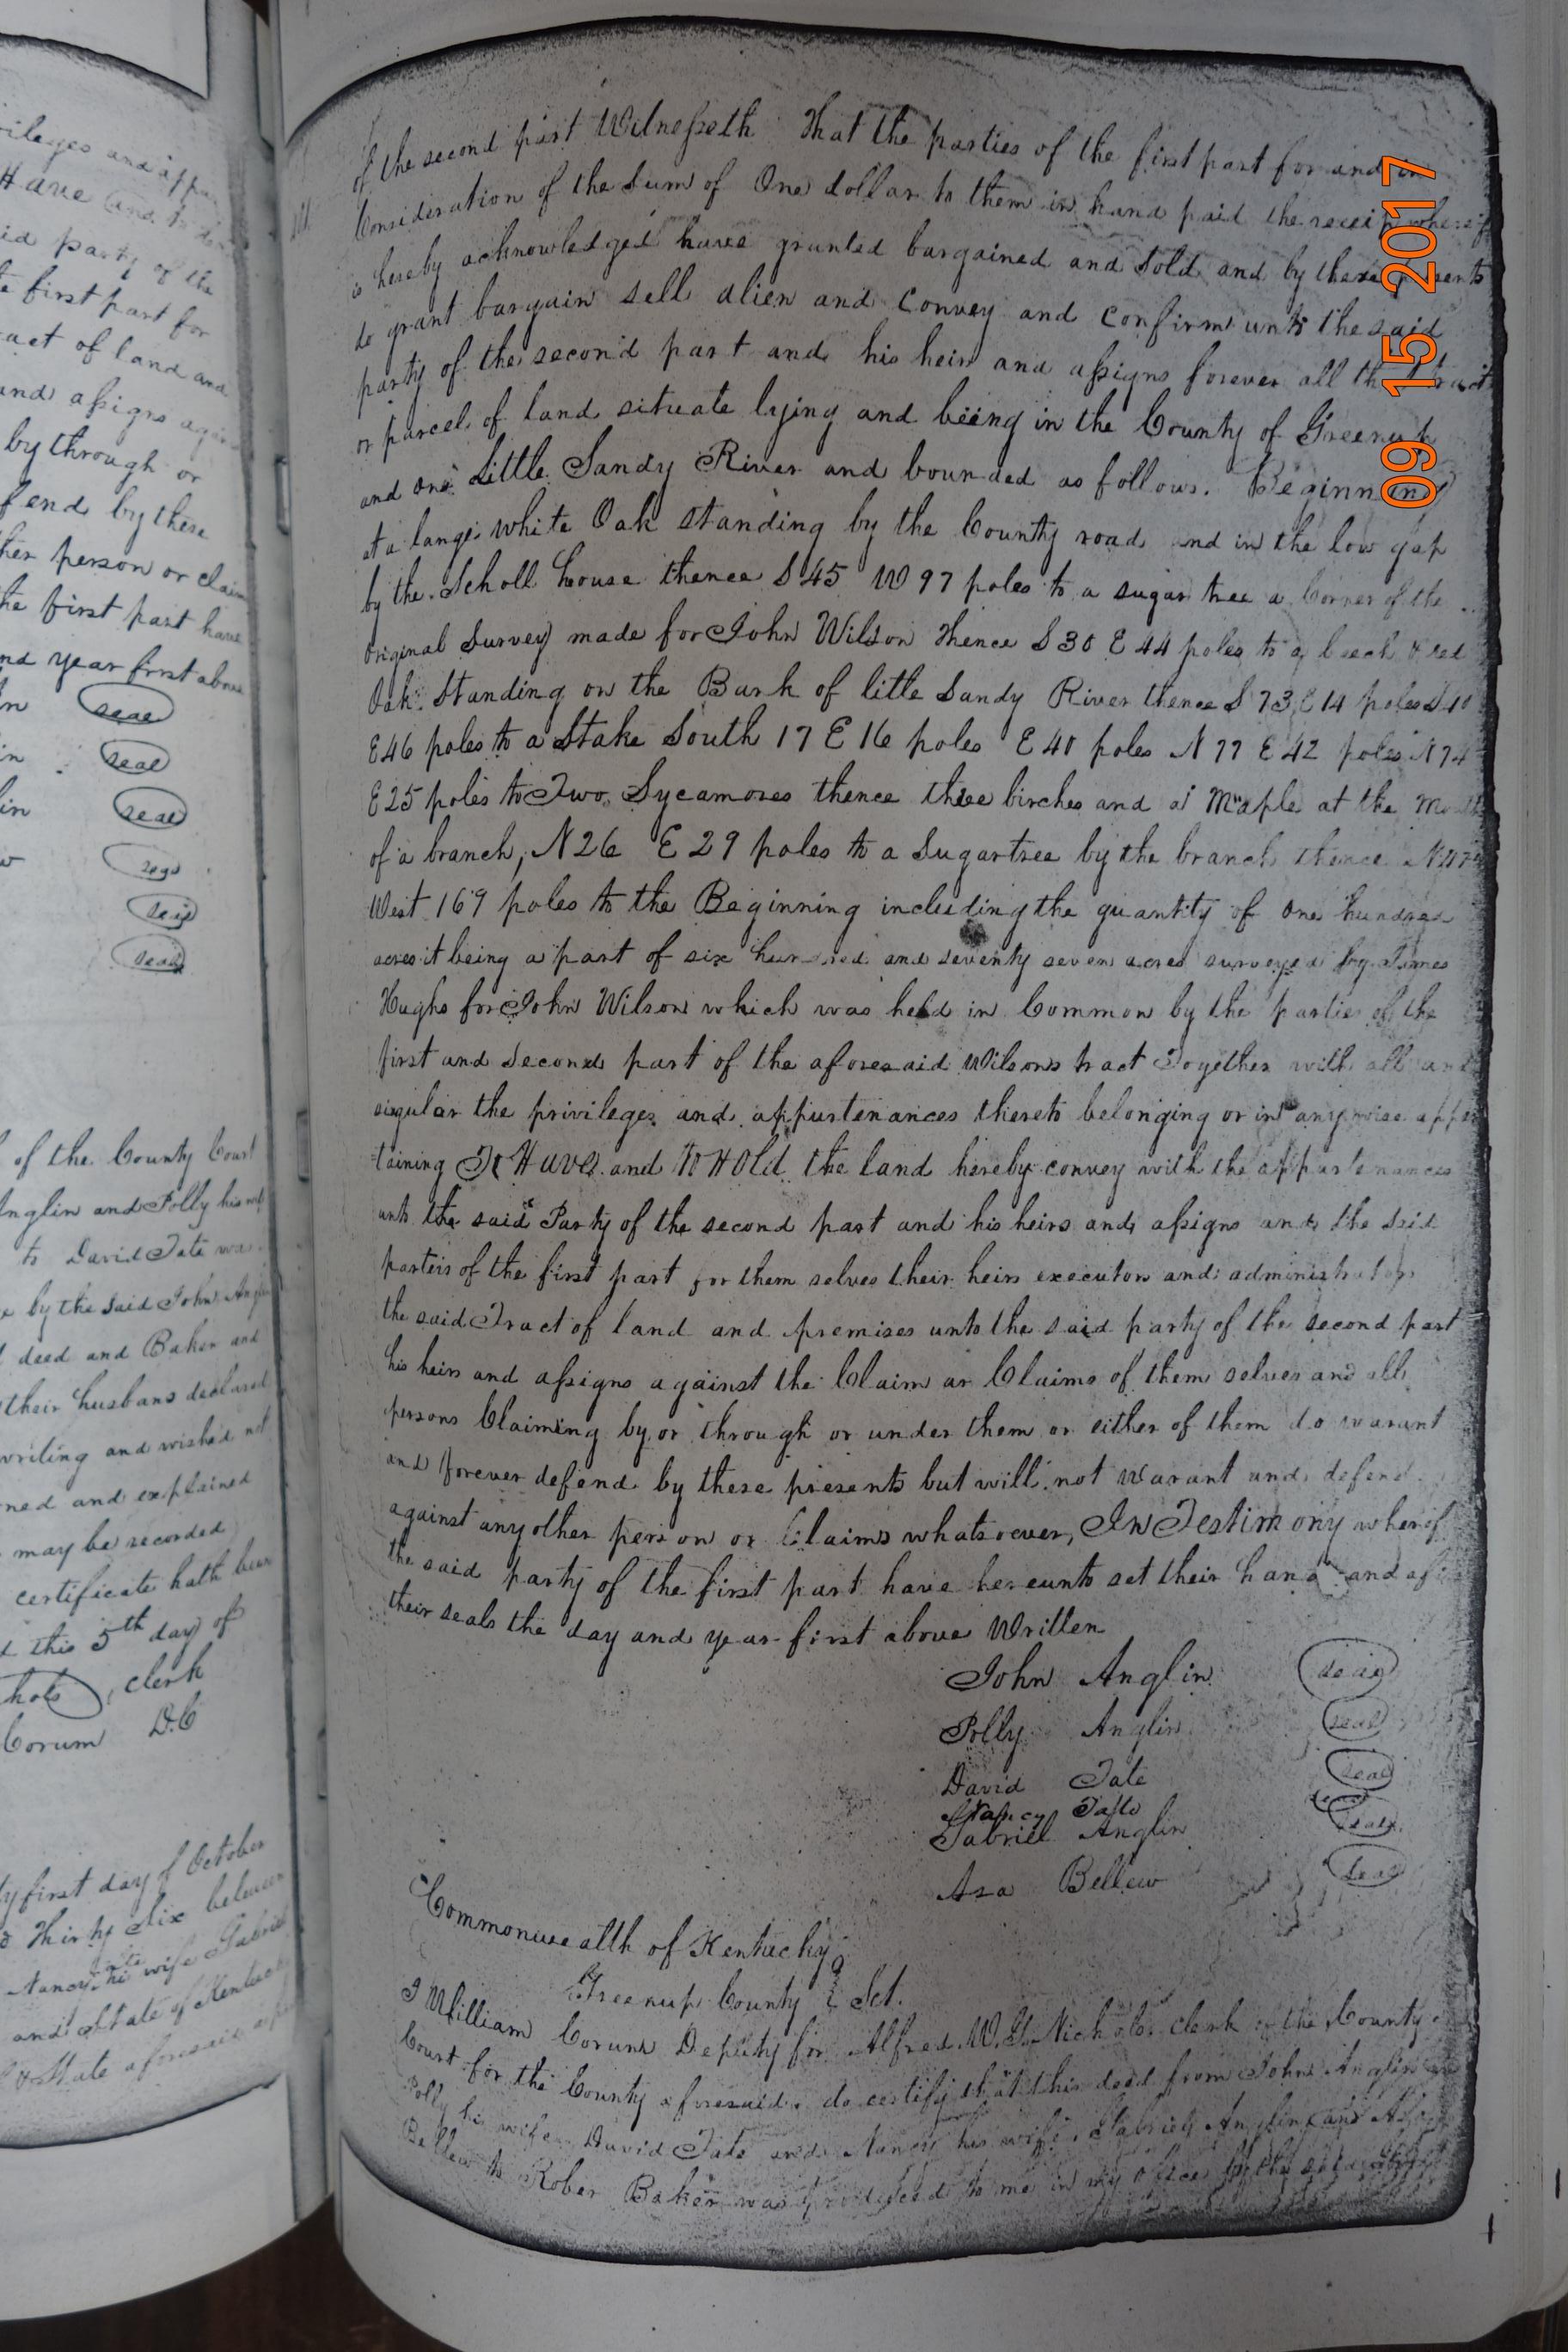 ileges and appu
Have and to
id party of the
e first part for
ract of land and
and assigns agai
by through or
fend by these
her person or claim
he first part have
nd year first above
n seal
in seal
lin seal
w seal
seal
seal
of the County Court
Anglin and Polly his wif
to David Tate was
e by the said John Angl
deed and Baker and
their husbans declared
writing and wished not
ned and explained
may be recorded
certificate hath been
d this 5th day of
hols , clerk
Corum D.C
ty first day of October
d Thirty Six between
Nancy his wife Gabriel
and State of Kentuck
& State aforesaid
of the second part Witnesseth That the parties of the first part for and in
Consideration of the Sum of One dollar to them in hand paid the receip whereof
is hereby acknowledged have granted bargained and Sold and by these presents
do grant bargain sell alien and Convey and Confirm unto the said
party of the second part and his heirs and assigns forever all that tract
or parcel of land situate lying and being in the County of Greenup
and one Little Sandy River and bounded as follows. Beginning
at a large white Oak standing by the County road and in the low gap
by the Scholl house thence S 45 W 97 poles to a sugar tree a Corner of the
original Survey made for John Wilson thence S 30 E 44 poles to a beech & red
Oak Standing on the Bank of little Sandy River thence S 73 E 14 poles S 40
E 46 poles to a Stake South 17 E 16 poles E 40 poles N 77 E 42 poles N 74
E 25 poles to Two Sycamores thence three birches and a Maple at the Mouth
of a branch, N 26 E 29 poles to a Sugartree by the branch thence
West 169 poles to the Beginning including the quantity of One hundred
acres it being a part of six hundred and seventy seven acres surveyed by James
Hughs for John Wilson which was held in Common by the parties of the
first and Second part of the aforesaid Wilsons tract Together with all and
singular the privileges and appurtenances thereto belonging or in anywise apper
=taining To Have and To Hold the land hereby convey with the appurtenances
unto the said Party of the second part and his heirs and assigns and the Said
parteis of the first part for them selves their heirs executors and administrators
the said Tract of land and premises unto the said party of the second part
his heirs and assigns against the Claim ar Claims of them selves and all
persons Claiming by or through or under them or either of them do warant
and forever defend by these presents but will not Warant and defend
against any other person or Claims whatsoever, In Testimony wherof
the said party of the first part have hereunto set their hand and af
their seals the day and year first above Written
John Anglin seal
Polly Anglin seal
David Tate seal
Nancy Tate seal
Gabriel Anglin seal
Asa Bellew seal
Commonwealth of Kentucky
Greenup County Sct.
I William Corum Deputy for Alfred W. G. Nichols clerk of the County
Court for the County aforesaid do certify that this deed from John Anglin
Polly his wife David Tate and Nancy his wife Gabriel Anglin and Asa
Bellew to Rober Baker was produced to me in my office by the said
09 15 2017